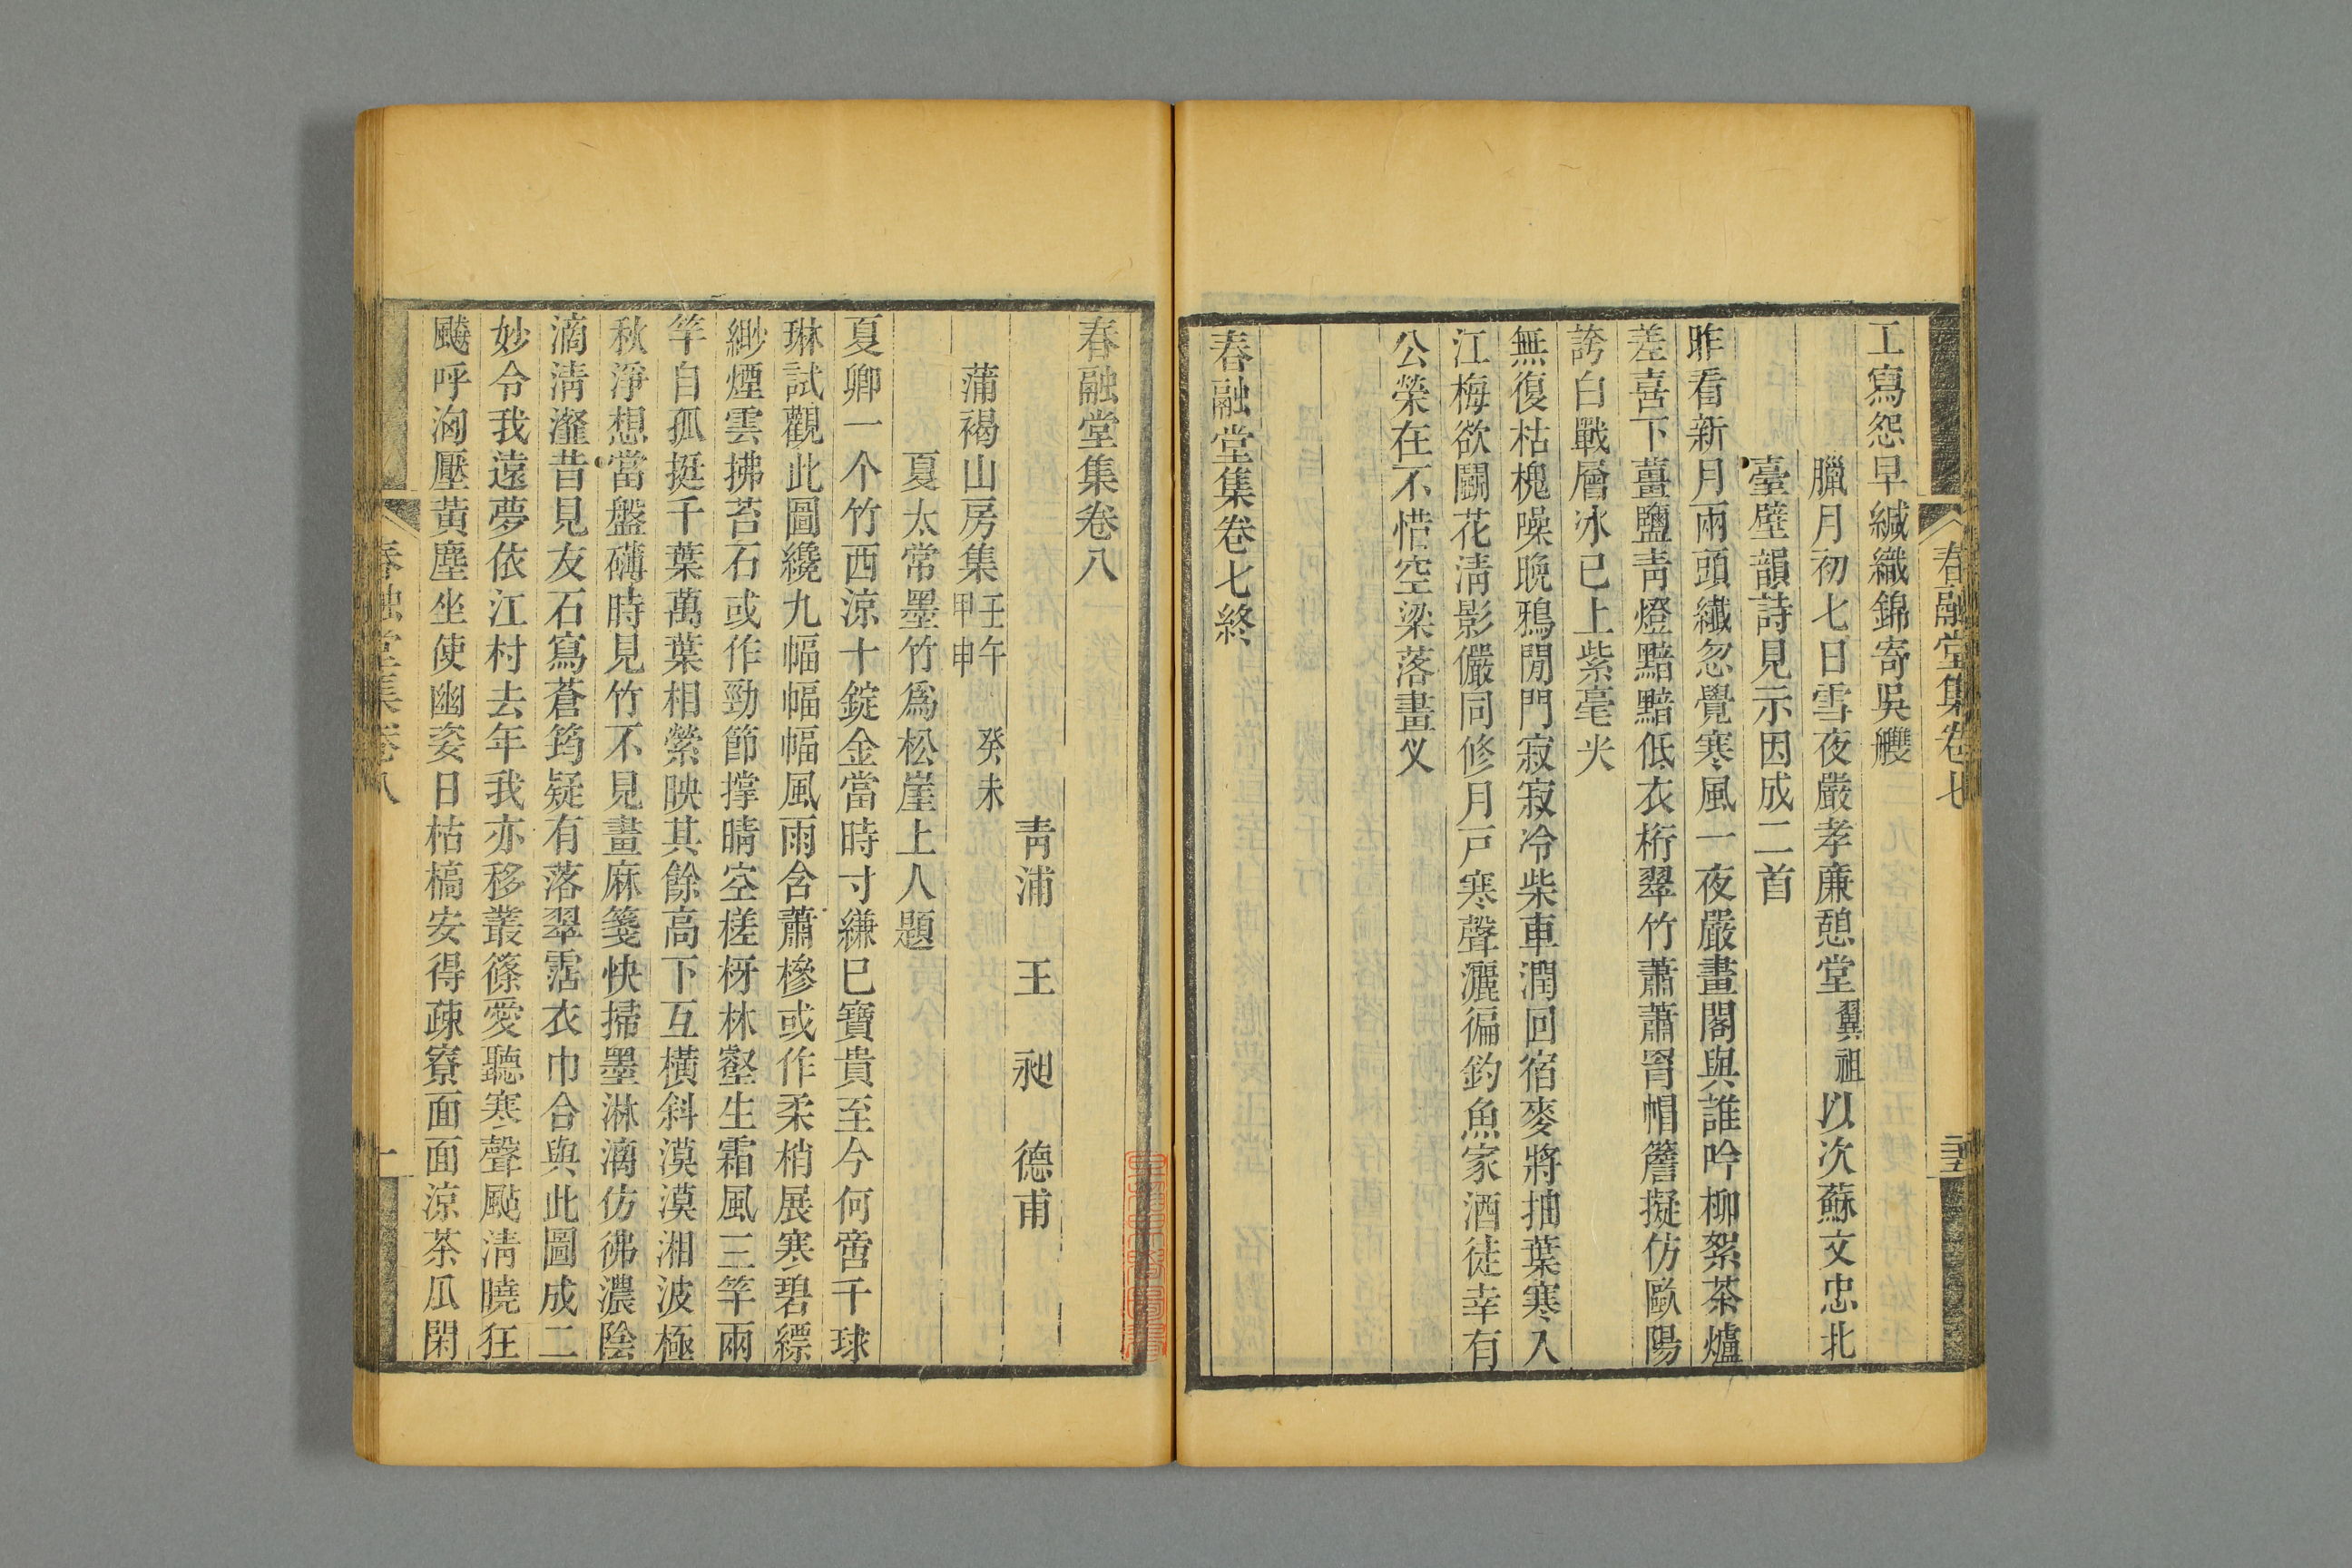 春融堂集卷七
工寫怨早緘織錦寄吳艭
臘月初七日雪夜嚴孝廉憩堂翼祖以次蘇文忠北
臺壁韻詩見示因成二首
昨看新月兩頭纖忽覺寒風一夜嚴畫閣與誰吟柳絮茶爐
差喜下薑鹽靑燈黯黯低衣桁翠竹蕭蕭罥帽簷擬仿歐陽
誇白戰層冰已上紫毫尖
無復枯槐噪晚鴉閒門寂寂冷柴車潤回宿麥將抽葉寒入
江梅欲鬭花淸影儼同修月戸寒聲灑徧釣魚家酒徒幸有
公榮在不惜空梁落畫义
春融堂集卷七終
春融堂集卷八
靑浦 王 昶 德甫
蒲褐山房集壬午 癸未 甲申
夏太常墨竹爲松崖上人題
夏卿一个竹西涼十錠金當時寸縑巳寶貴至今何啻千球
琳試觀此圖纔九幅幅幅風雨含蕭槮或作柔梢展寒碧縹
緲煙雲拂苔石或作勁節撑晴空槎枒林壑生霜風三竿兩
竿自孤挺千葉萬葉相縈映其餘高下互橫斜漠漠湘波極
秋淨想當盤礴時見竹不見畫麻箋快掃墨淋漓仿彿濃陰
滴淸瀣昔見友石寫蒼筠疑有落翠霑衣巾合與此圖成二
妙令我遠夢依江村去年我亦移叢篠愛聽寒聲颭淸曉狂
飈呼洶壓黃塵坐使幽姿日枯槁安得疎寮面面涼茶瓜閑
春融堂集卷八
一